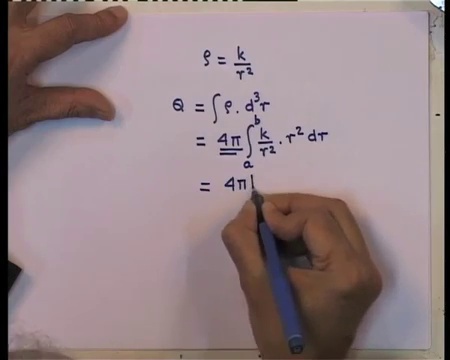 ρ = k/r²
Q = ∫ ρ. d³r
= 4π ∫ₐᵇ k/r² . r² dr
= 4π